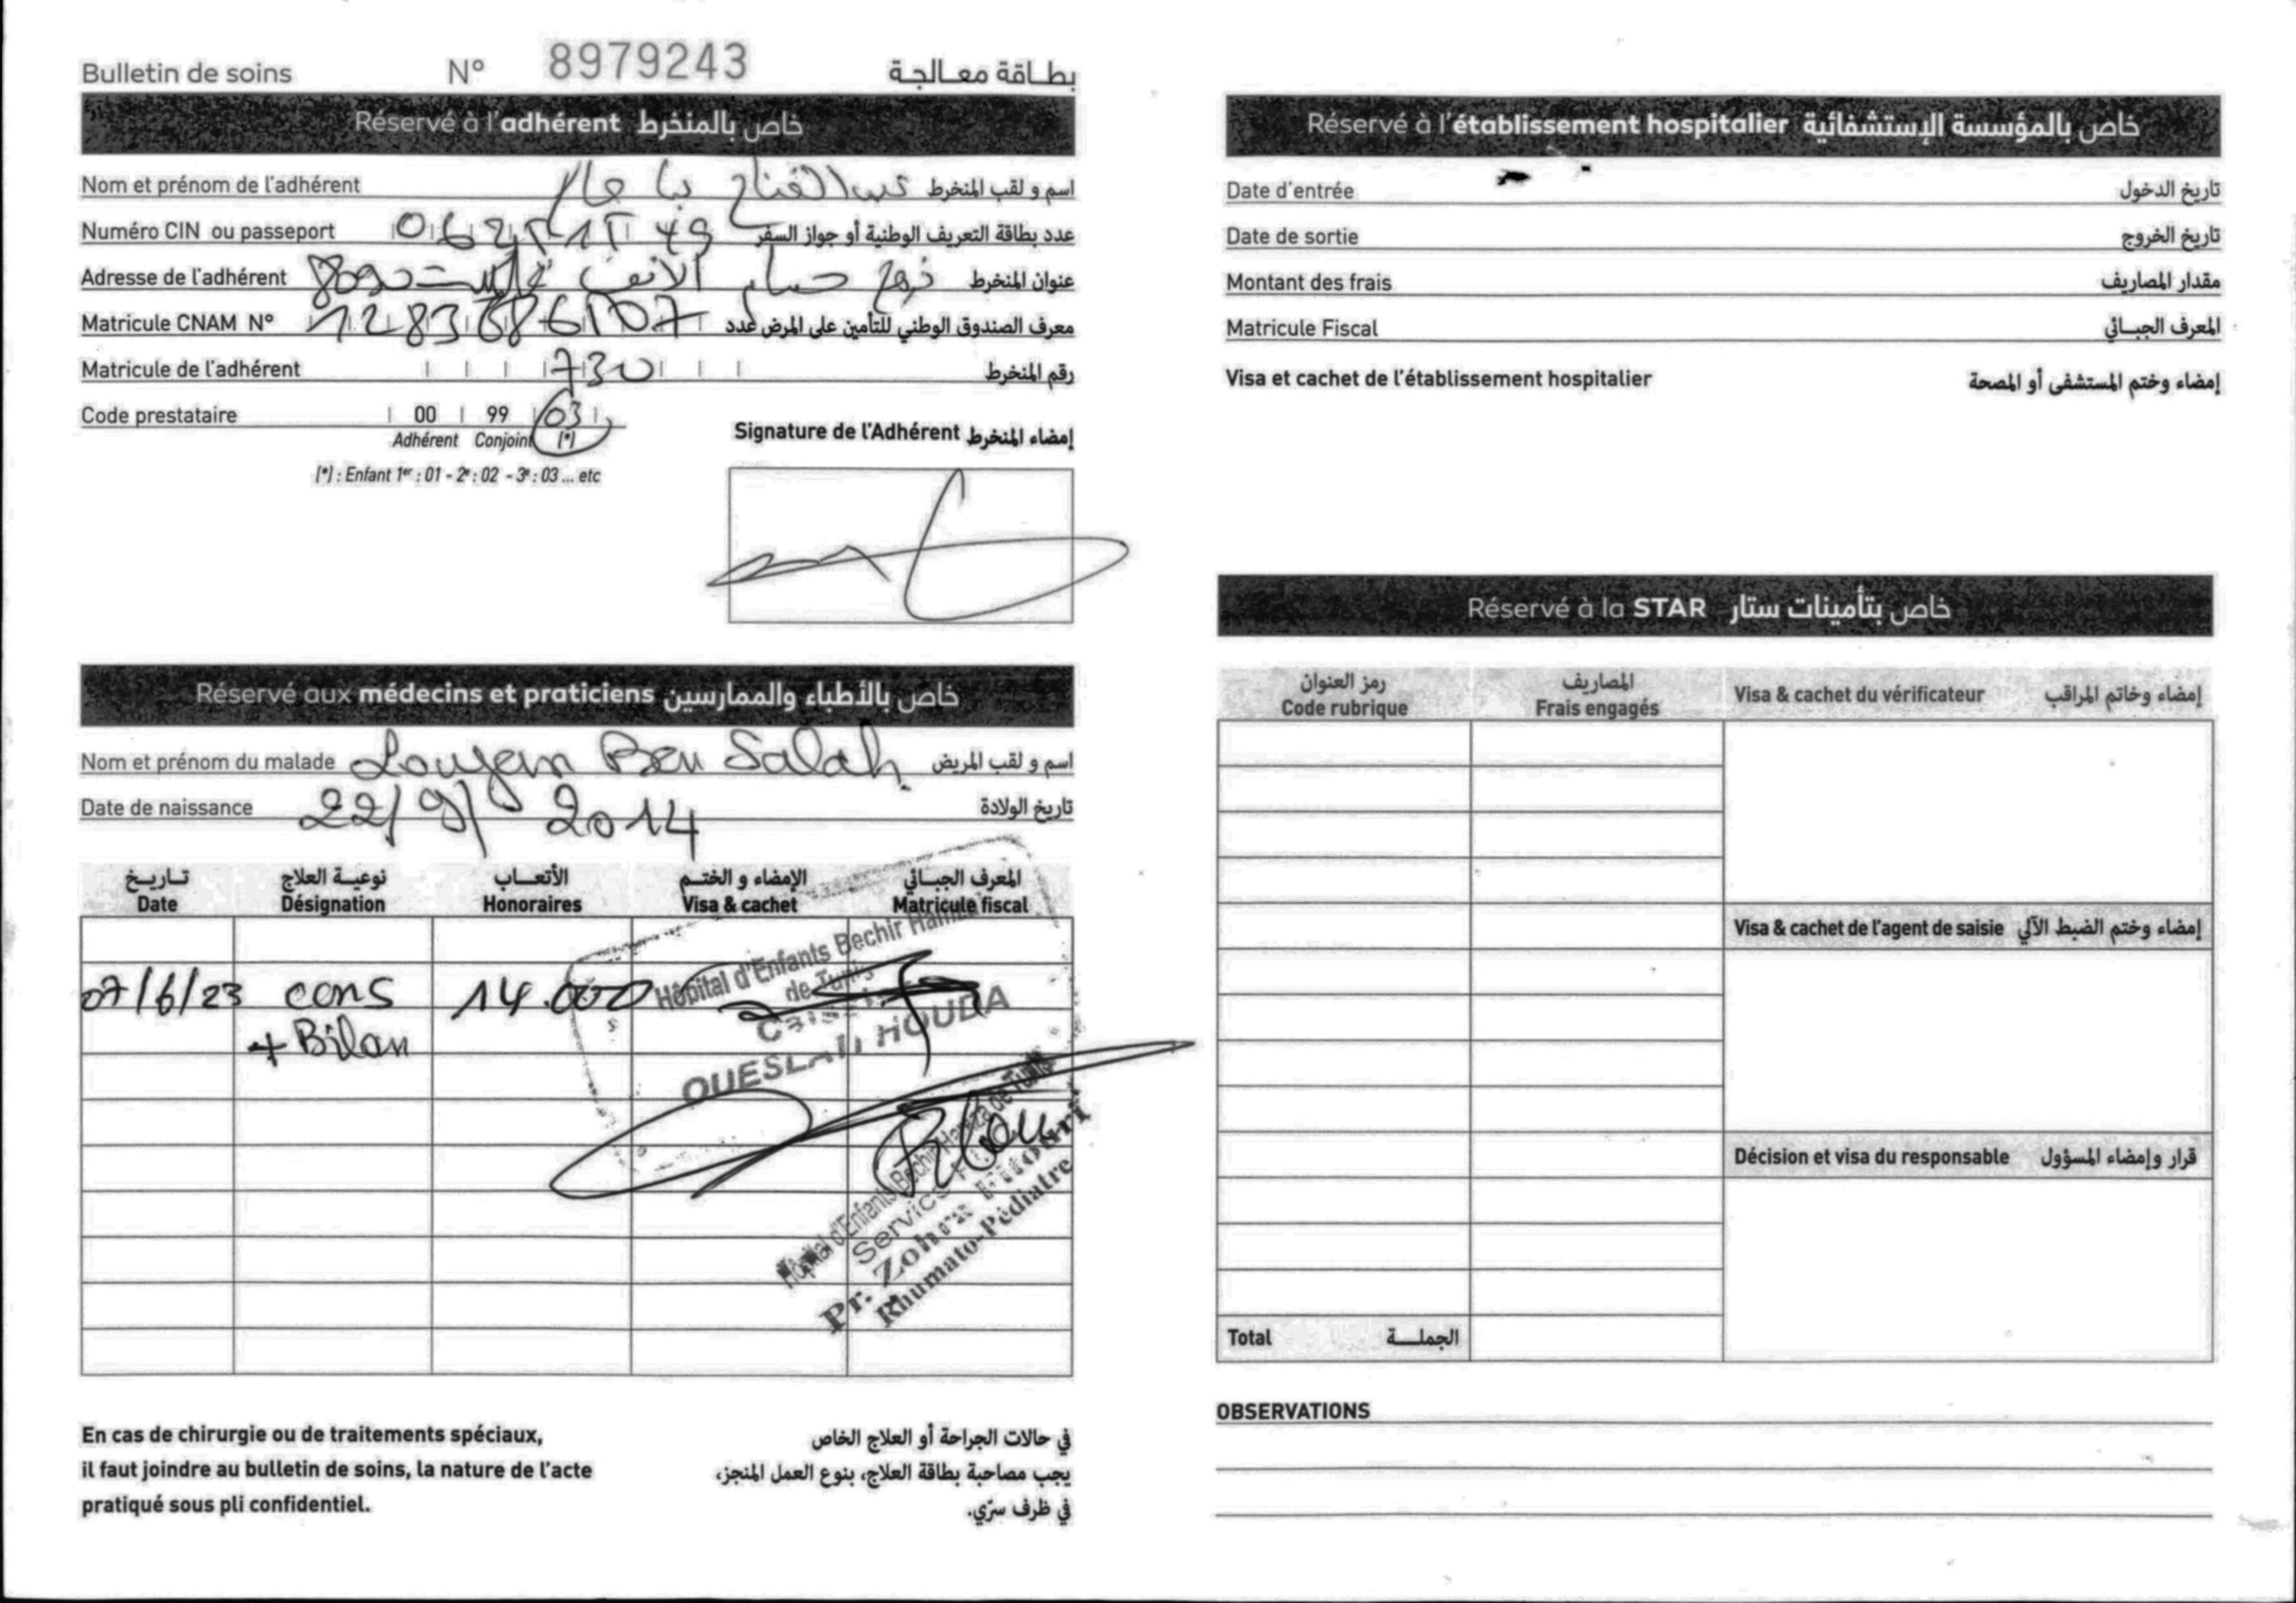 Bulletin de soins N° 8979243 بطاقة معالجة
Réservé à l'adhérent خاص بالمنخرط
Nom et prénom de l'adhérent اسم و لقب المنخرط
Numéro CIN ou passeport عدد بطاقة التعريف الوطنية أو جواز السفر
Adresse de l'adhérent نهج حسام 8090 عنوان المنخرط
Matricule CNAM N° معرف الصندوق الوطني للتأمين على المرض عدد
Matricule de l'adhérent 730 رقم المنخرط
Code prestataire 00 99 03
Adhérent Conjoint (*)
(*) : Enfant 1er : 01 - 2e : 02 - 3e : 03 ... etc
Signature de l'Adhérent إمضاء المنخرط
Réservé aux médecins et praticiens خاص بالأطباء والممارسين
Nom et prénom du malade Loujem Ben Salah اسم و لقب المريض
Date de naissance 22/9/2014 تاريخ الولادة
تاريخ نوعية العلاج الأتعاب الإمضاء و الختم المعرف الجبائي
Date Désignation Honoraires Visa & cachet Matricule fiscal
07/6/23 cons 14.000
+ Bilan
Hôpital d'Enfants Bechir Hamza
de Tunis
OUESLATI HOUDA
Hôpital d'Enfants Bechir Hamza de Tunis
Service
Pr. Zohra Fitouri
Rhumato-Pédiatre
En cas de chirurgie ou de traitements spéciaux,
il faut joindre au bulletin de soins, la nature de l'acte
pratiqué sous pli confidentiel.
في حالات الجراحة أو العلاج الخاص
يجب مصاحبة بطاقة العلاج، بنوع العمل المنجز،
في ظرف سرّي.
Réservé à l'établissement hospitalier خاص بالمؤسسة الإستشفائية
Date d'entrée تاريخ الدخول
Date de sortie تاريخ الخروج
Montant des frais مقدار المصاريف
Matricule Fiscal المعرف الجبائي
Visa et cachet de l'établissement hospitalier إمضاء وختم المستشفى أو المصحة
Réservé à la STAR خاص بتأمينات ستار
رمز العنوان المصاريف
Code rubrique Frais engagés Visa & cachet du vérificateur إمضاء وخاتم المراقب
Visa & cachet de l'agent de saisie إمضاء وختم الضبط الآلي
Décision et visa du responsable قرار وإمضاء المسؤول
Total الجملة
OBSERVATIONS